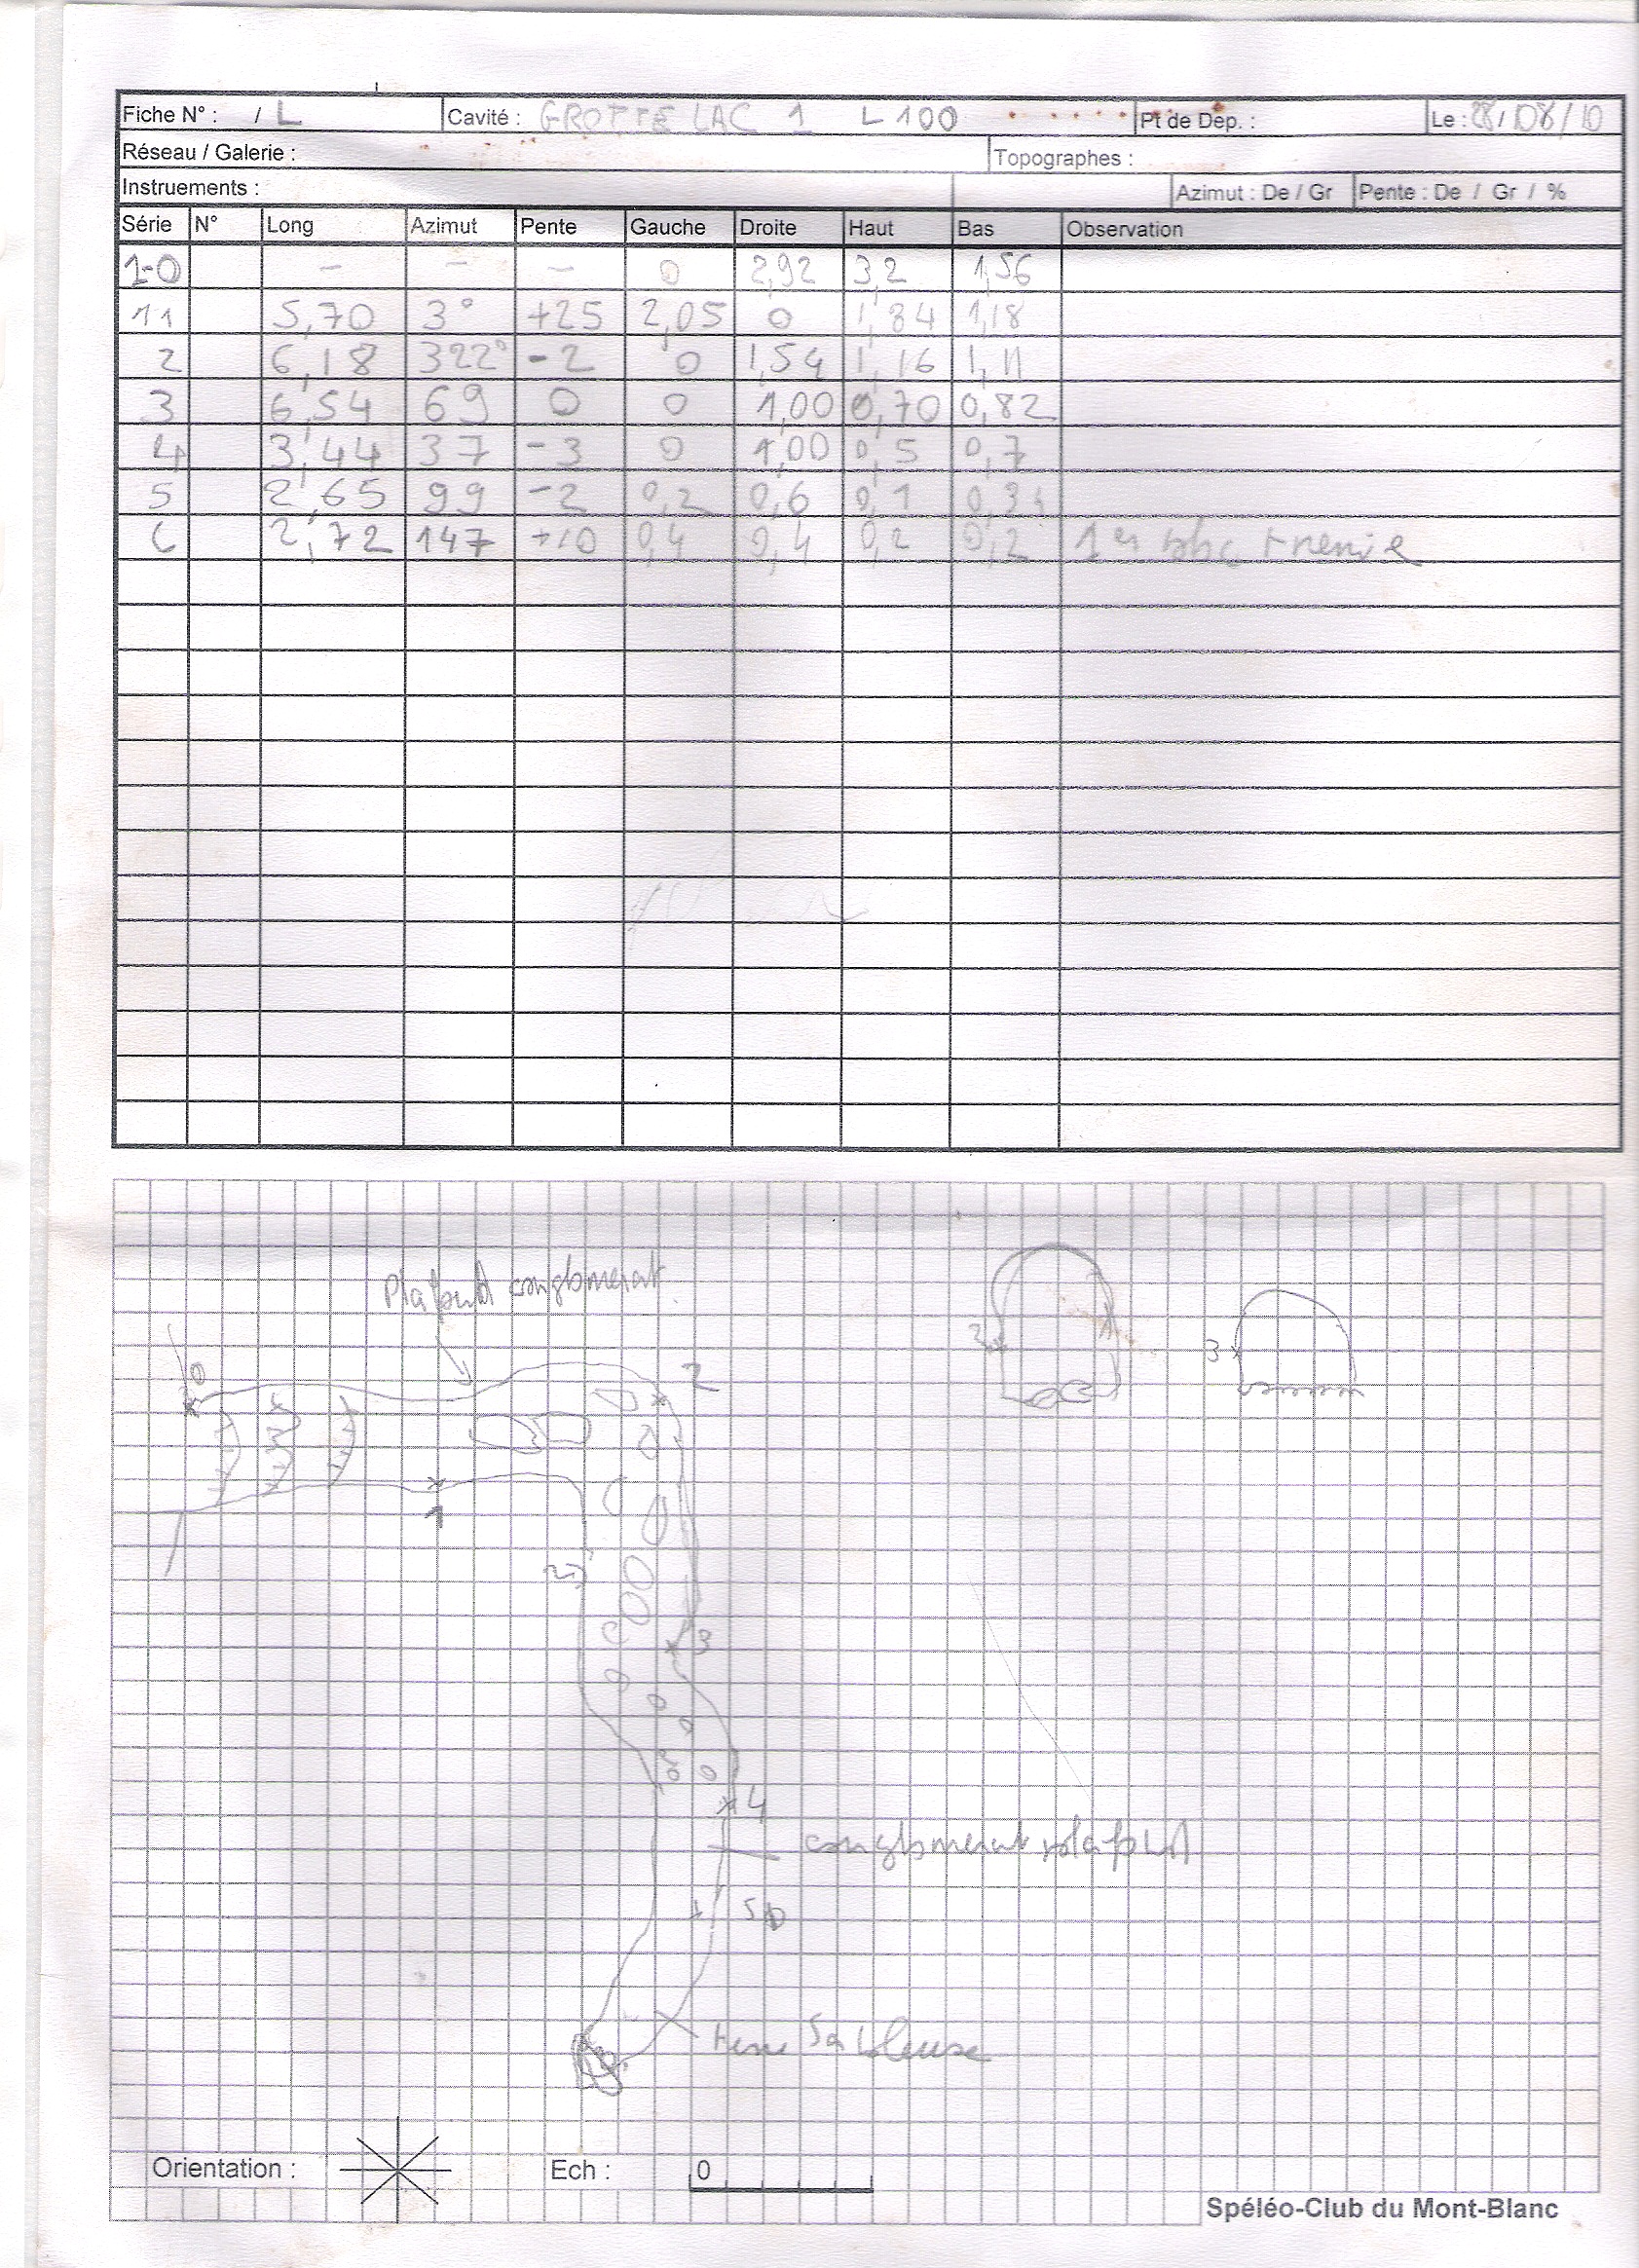 Fiche N° : / L Cavité : GROTTE LAC 1 L 100 Pt de Dep. : Le : 28/08/10
Réseau / Galerie : Topographes :
Instruements : Azimut : De / Gr Pente : De / Gr / %
Série N° Long Azimut Pente Gauche Droite Haut Bas Observation
1-0 - - - 0 2,92 3,2 1,56
11 5,70 3° +25 2,05 0 1,84 1,18
2 6,18 322° -2 0 1,54 1,16 1,11
3 6,54 69 0 0 1,00 0,70 0,82
4 3,44 37 -3 0 1,00 0,5 0,7
5 2,65 99 -2 0,2 0,6 0,1 0,3
6 2,72 147 +10 0,4 0,4 0,2 0,2
Plafond conglomerat
0
2
2
3
1
3
4
conglomerat plafond
5
terre Sableuse
Orientation : Ech : 0
Spéléo-Club du Mont-Blanc